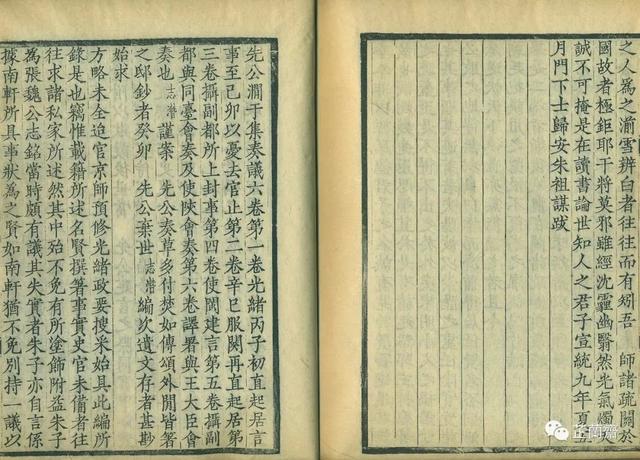 之人為之湔雪辨白者往往而有矧吾　師諸疏關於
國故者極鉅耶干將莫邪雖經沈霾幽翳然光氣燭
誠不可掩是在讀書論世知人之君子宣統九年夏
月門下士歸安朱祖謀跋
先公澗于集奏議六卷第一卷光緒丙子初直起居言
事至己卯以憂去官止第二卷辛巳服闋再直起居第
三卷攝副都所上封事第四卷使閩建言第五卷攝副
都與同臺會奏及使陝會奏第六卷譯署與王大臣會
奏也志潛謹案　先公奏草多付焚如傳頌外閒皆署
之邸鈔者癸卯　先公棄世志潛編次遺文存者甚尠
始求
方略未全迨官京師預修光緒政要搜采始具此編所
錄是也竊惟載籍所述名賢撰箸事實史官未備者往
往求諸私家所述然其中殆不免有所塗飾附益朱子
為張魏公志銘當時頗有議其失實者朱子亦自言係
據南軒所具事狀為之賢如南軒猶不免別持一議以
芷蘭齋